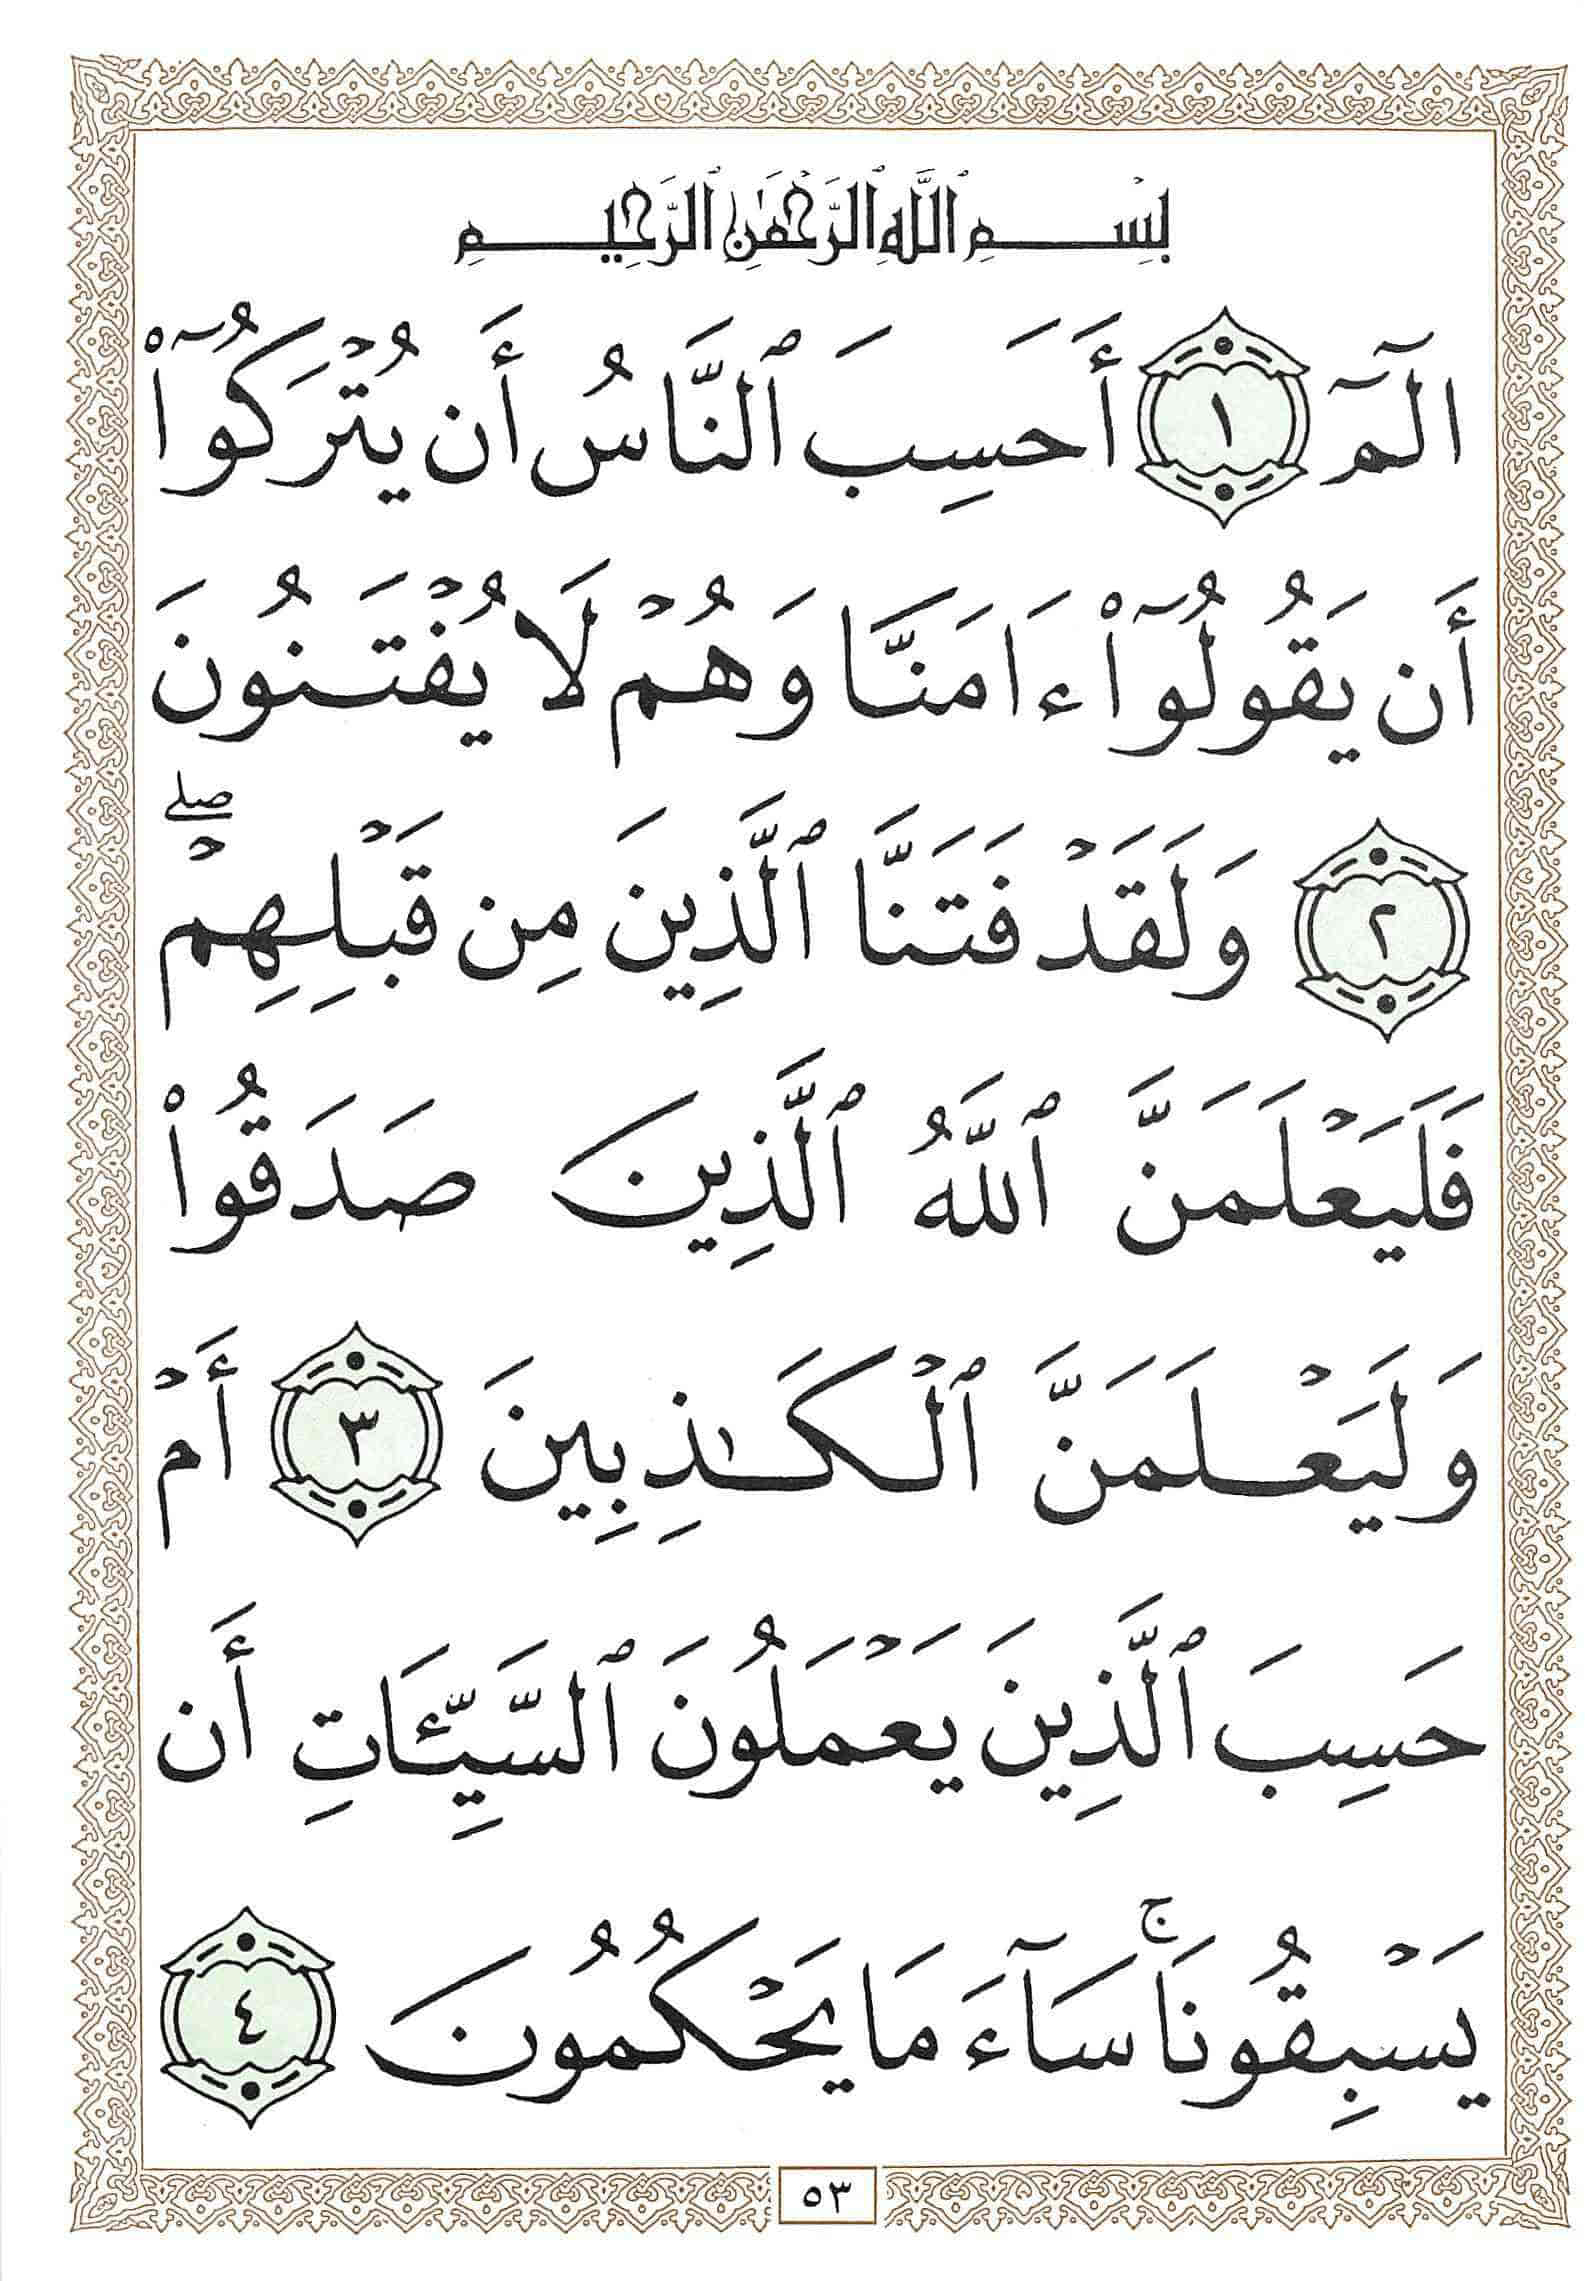 بِسْمِ ٱللَّهِ ٱلرَّحْمَٰنِ ٱلرَّحِيمِ
الٓمٓ ١ أَحَسِبَ ٱلنَّاسُ أَن يُتْرَكُوٓا۟
أَن يَقُولُوٓا۟ ءَامَنَّا وَهُمْ لَا يُفْتَنُونَ
٢ وَلَقَدْ فَتَنَّا ٱلَّذِينَ مِن قَبْلِهِمْ ۖ
فَلَيَعْلَمَنَّ ٱللَّهُ ٱلَّذِينَ صَدَقُوا۟
وَلَيَعْلَمَنَّ ٱلْكَٰذِبِينَ ٣ أَمْ
حَسِبَ ٱلَّذِينَ يَعْمَلُونَ ٱلسَّيِّـَٔاتِ أَن
يَسْبِقُونَا ۚ سَآءَ مَا يَحْكُمُونَ ٤
٥٣